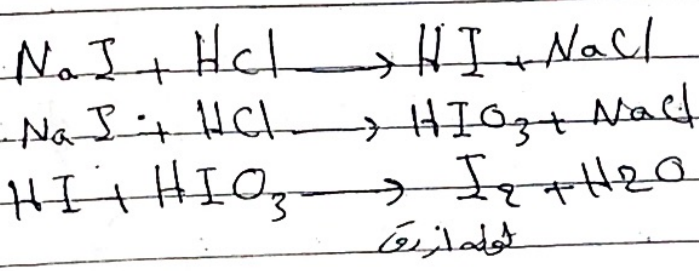 NaI + HCl → HI + NaCl
NaI + HCl → HIO₃ + NaCl
HI + HIO₃ → I₂ + H₂O